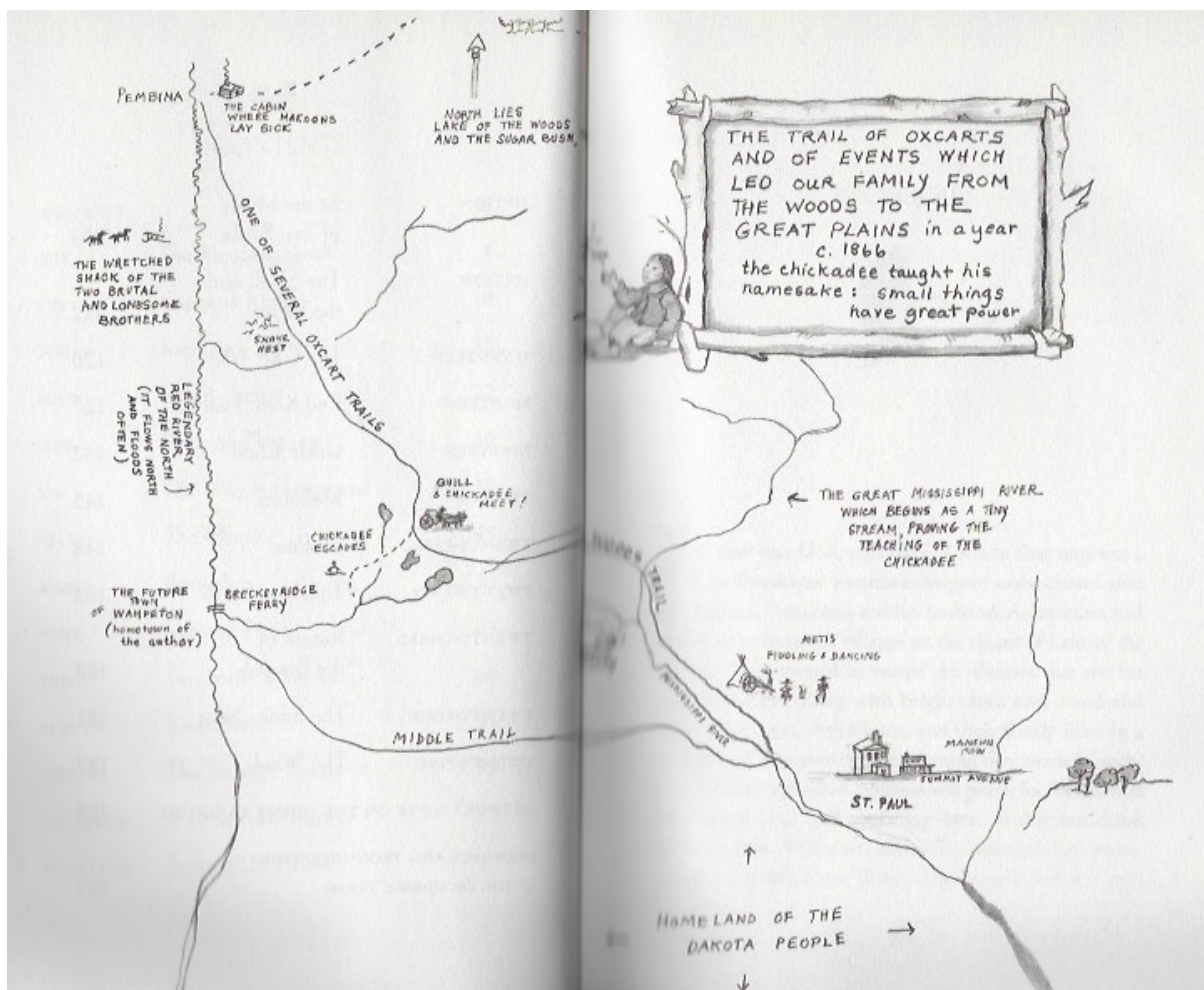 PEMBINA
THE CABIN
WHERE MAKOONS
LAY SICK
NORTH LIES
LAKE OF THE WOODS
AND THE SUGAR BUSH,
THE WRETCHED
SHACK OF THE
TWO BRUTAL
AND LONESOME
BROTHERS
ONE OF SEVERAL OXCART TRAILS
SNAKE
NEST
LEGENDARY
RED RIVER
OF THE NORTH
(IT FLOWS NORTH
AND FLOODS
OFTEN)
QUILL
& CHICKADEE
MEET!
CHICKADEE
ESCAPES
THE FUTURE
TOWN
OF WAHPETON
(hometown of
the author)
BRECKENRIDGE
FERRY
MIDDLE TRAIL
THE TRAIL OF OXCARTS
AND OF EVENTS WHICH
LED OUR FAMILY FROM
THE WOODS TO THE
GREAT PLAINS in a year
c. 1866
the chickadee taught his
namesake: small things
have great power
THE GREAT MISSISSIPPI RIVER
WHICH BEGINS AS A TINY
STREAM, PROVING THE
TEACHING OF THE
CHICKADEE
WOODS TRAIL
METIS
FIDDLING & DANCING
MISSISSIPPI RIVER
SUMMIT AVENUE
ST. PAUL
HOMELAND OF THE
DAKOTA PEOPLE